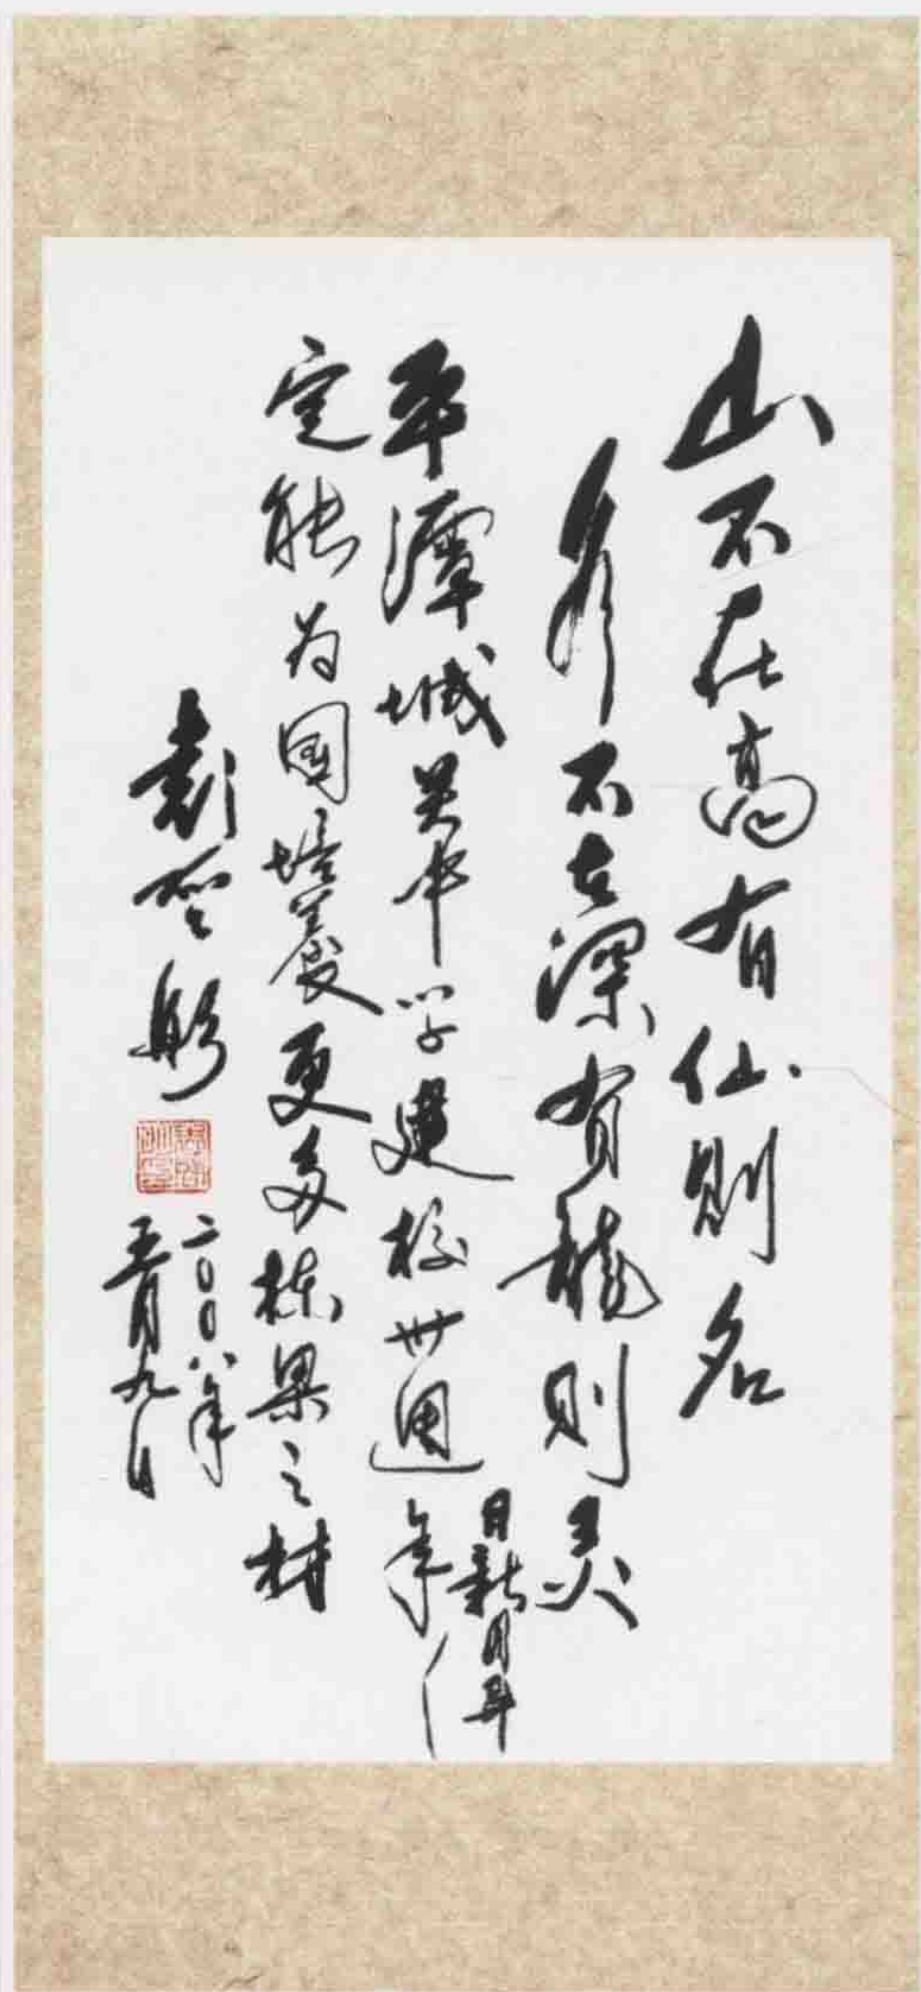 山不在高有仙則名
水不在深有龍則灵
平潭城关中学建校卅週年
日新月异
定能为国培養更多栋梁之材
袁啓彤
二〇〇八年
五月九日